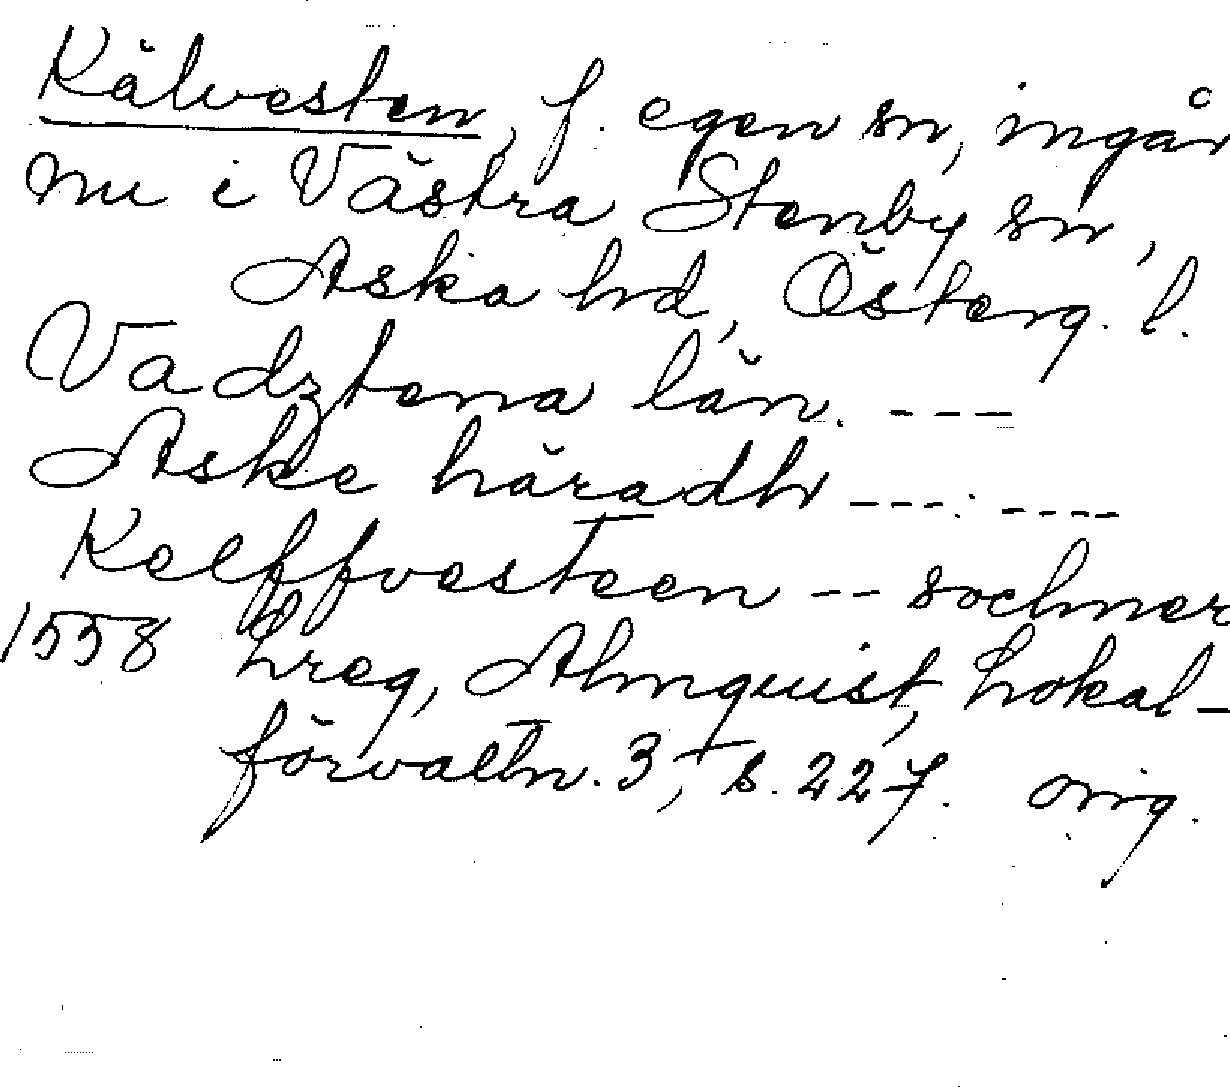 Kälvesten, f. egen sn, ingår
nu i Västra Stenby sn,
Aska hd, Österg. l.
Vadztena län. ---
Aske häradh ---- ----
Kelffvesteen -- sochner
1558 Lreg, Almquist, Lokal-
förvaltn. 3, s. 227. orig.